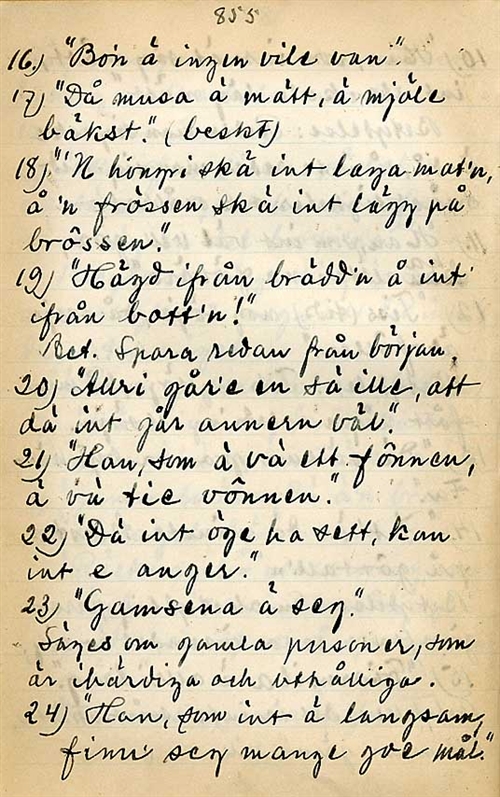 855
16.) "Bón å ingen vile van".
17) "Då musa å mätt, å mjöle
bäkst." (beskt)
18) "'N hongri skä int laga mat'n,
å 'n frössen skä int lägg på
brössen."
19) "Hägd ifrån brädd'n å int
ifrån bott'n!"
Bet. Spara redan från början.
20) "Allri går'e en så ille, att
dä int går annern väl."
21) "Han, som ä vä ett fönnen,
ä vä tie vönnen."
22) "Dä int öge ha sett, kan
int e anger."
23) "Gamsena ä seg."
Säges om gamla personer, som
är ihärdiga och uthålliga.
24) "Han, som int ä langsam,
finn seg mange goe mål."